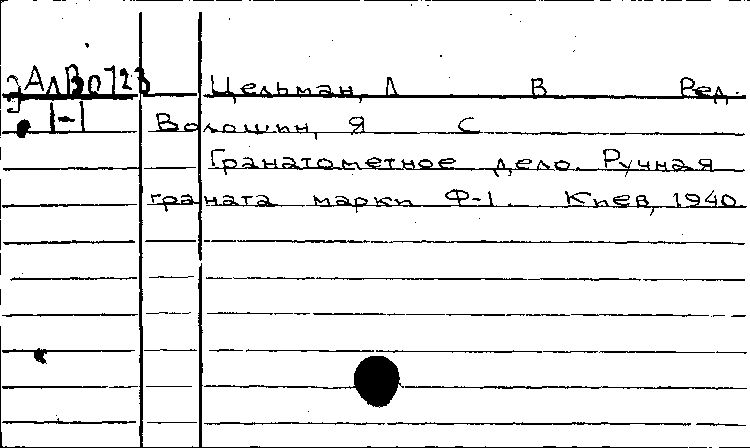 АлВ0723 Цельман, Л В Ред.
1-1 Волошин, Я С
Гранатометное дело. Ручная
граната марки Ф-1. Киев, 1940